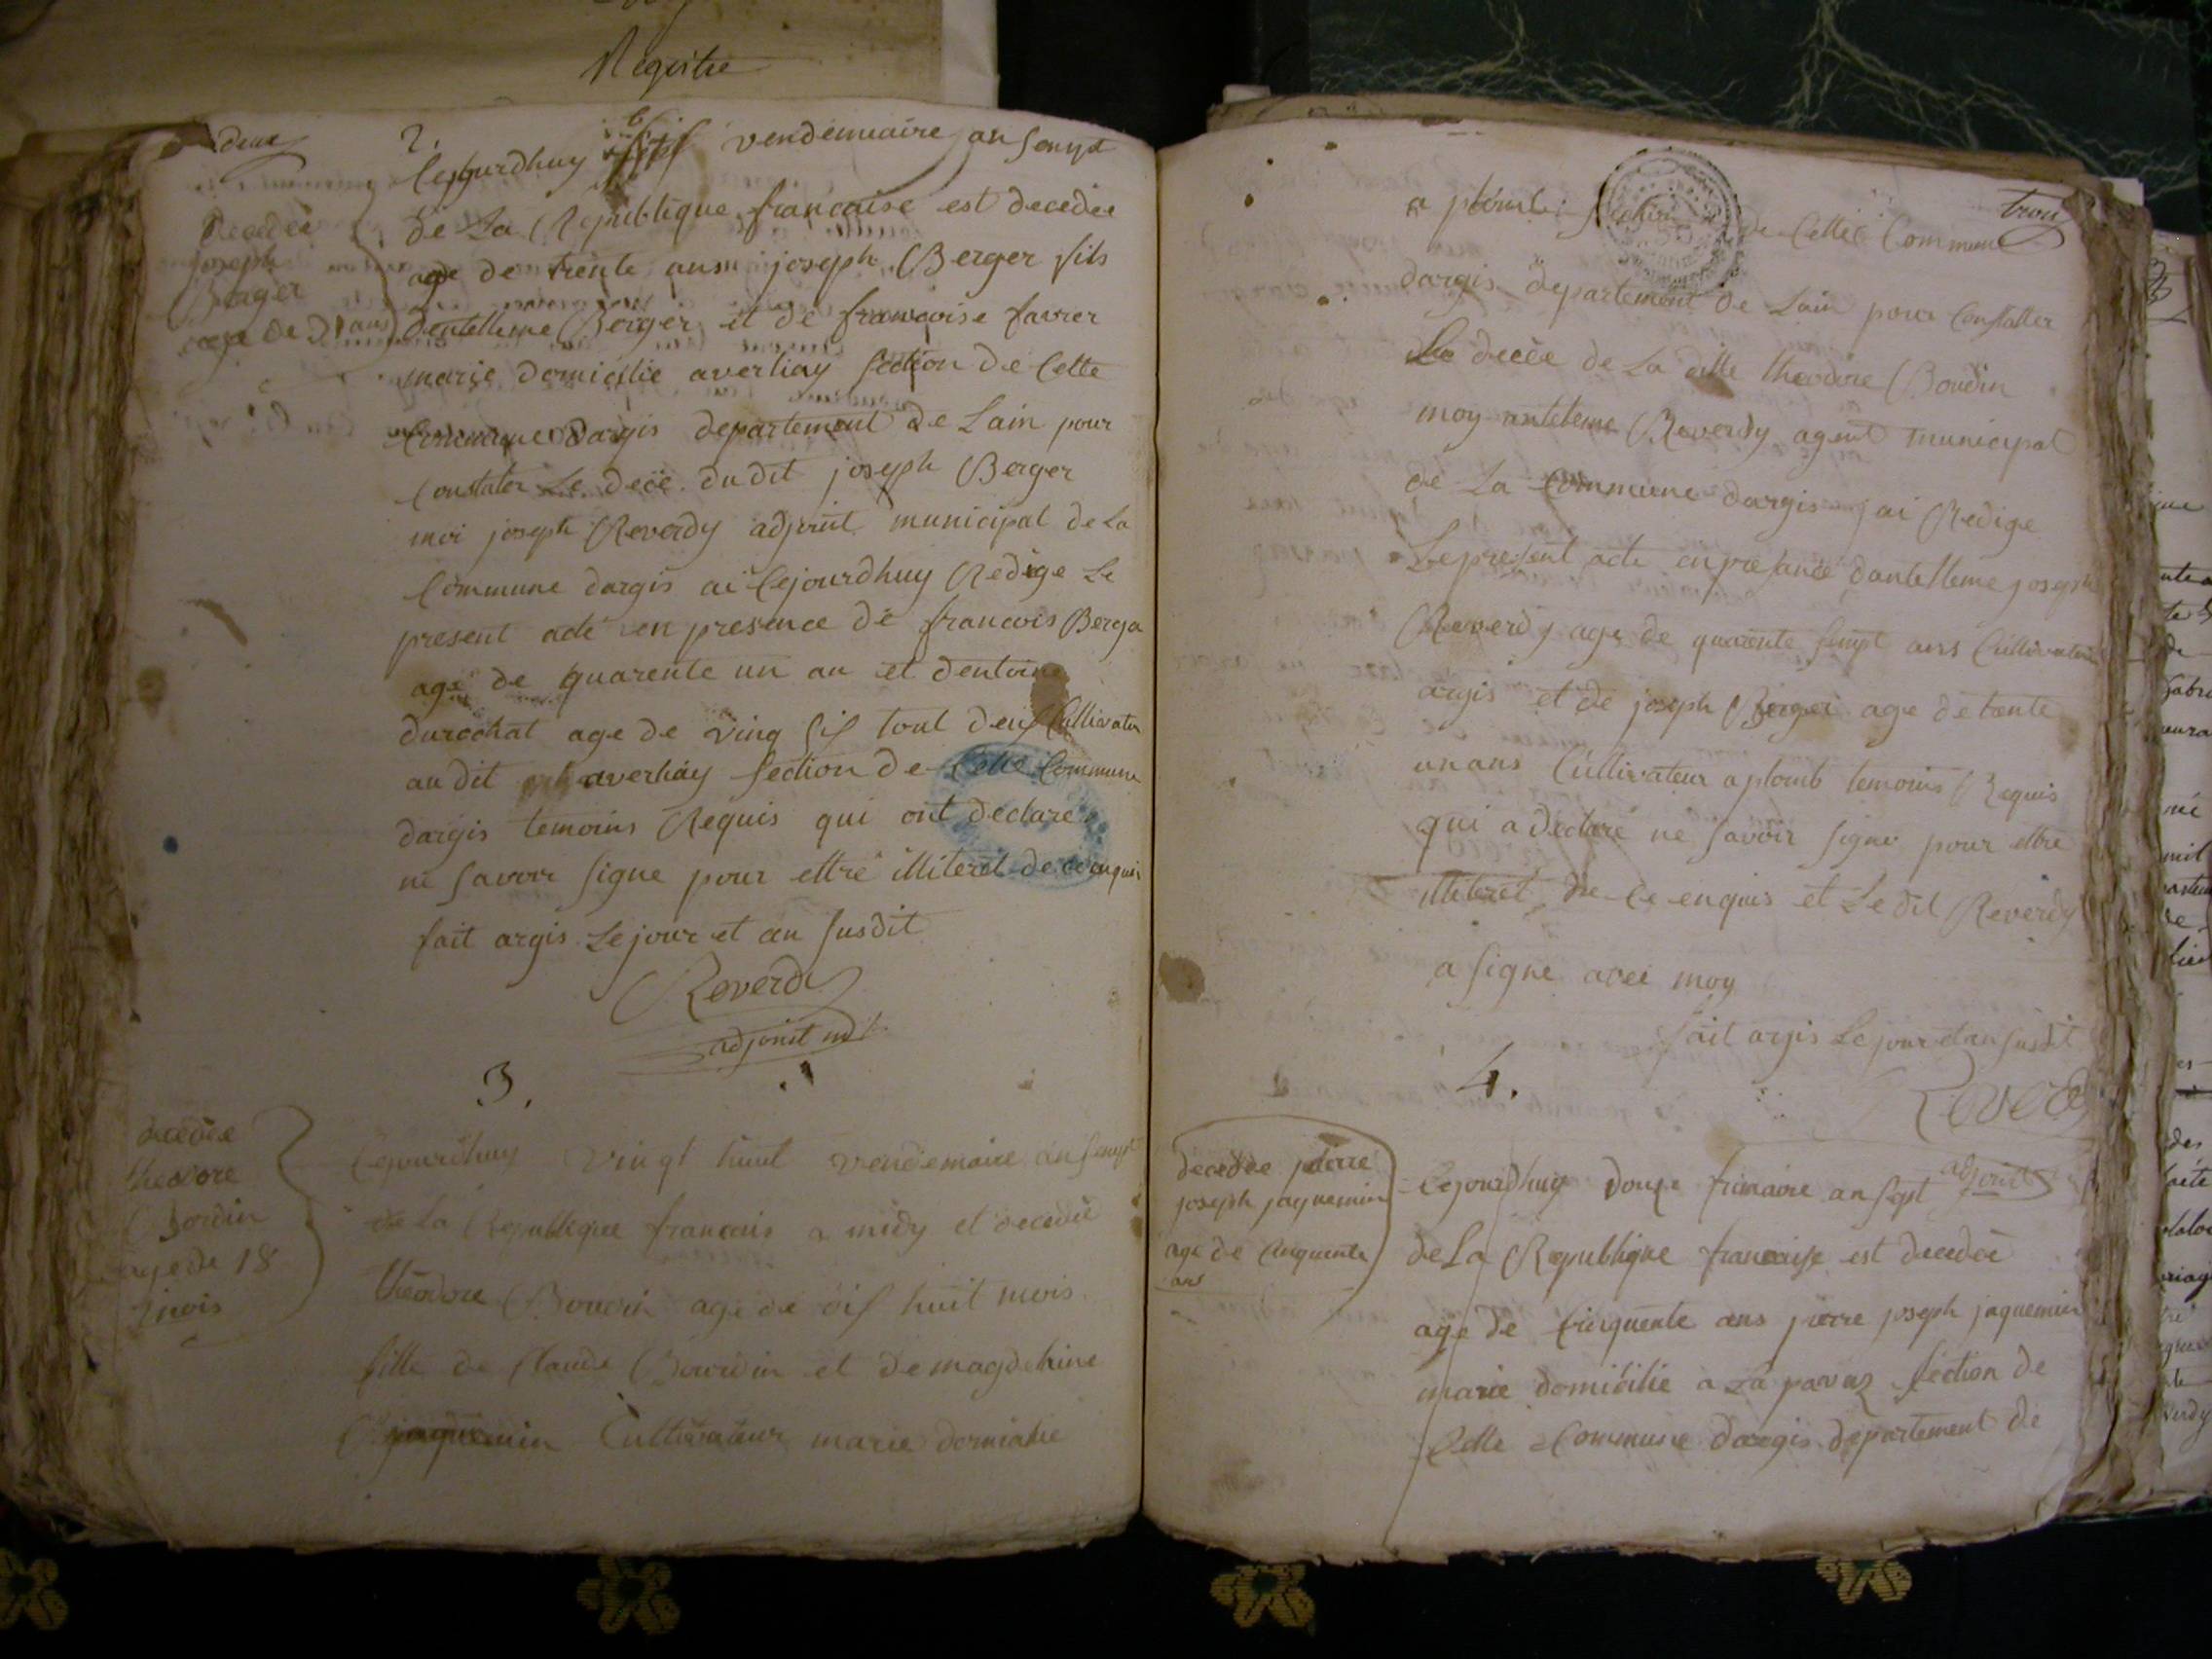 Registre
deux
2.
Cejourdhuy six vendemiaire an sempt
de La Republique francaise est decedee
age de trente ans joseph Berger fils
dentelleme Berger et de francoise favrer
marie domicilie averliay section de Cette
Commune dargis departement de Lain pour
constater Le decé dudit joseph Berger
moi joseph Reverdy adjoint municipal de La
Commune dargis ai Cejourdhuy Redige Le
present acte en presence de francois Berger
age de quarente un an et dentoine
durochat age de ving six tout deux Cultivateur
au dit averliay section de Cette Commune
dargis temoins Requis qui ont declare
ne savoir signe pour ettre illiteret de ce enquis
fait argis Le jour et an susdit
Reverdy
adjoint m
Decedee
joseph
Berger
age de ans
3.
decedee
theodore
Bordin
age de 18
mois
Cejourdhuy vingt huit vendemaire an sempt
de La Republique francais a midy et decedee
theodore Boudin age de dix huit mois
fille de Claude Bourdin et de magdeleine
jaquemin Cultivateur marie domicilie
trois
a plomb section de Cette Commune
dargis departement de Lain pour Constatter
Le decee de La ditte theodore Boudin
moy anteleme Reverdy agent municipal
de La Commune dargis jai Redige
Le present acte en presance dantelleme joseph
Reverdy age de quarente sempt ans Cultivateur
argis et de joseph Berger age de trente
un ans Cultivateur a plomb temoins Requis
qui a declaré ne savoir signer pour ettre
illiteret de Ce enquis et Le dit Reverdy
a signe avec moy
fait argis Le jour et an susdit
Reverdy
adjoint
4.
decedee pierre
joseph jaquemin
age de Cinquente
ans
Cejourdhuy douze frimaire an sept
de La Republique francaise est decedee
age de Cinquente ans pierre joseph jaquemin
marie domicilie a La pavaz section de
Cette Commune dargis departement de